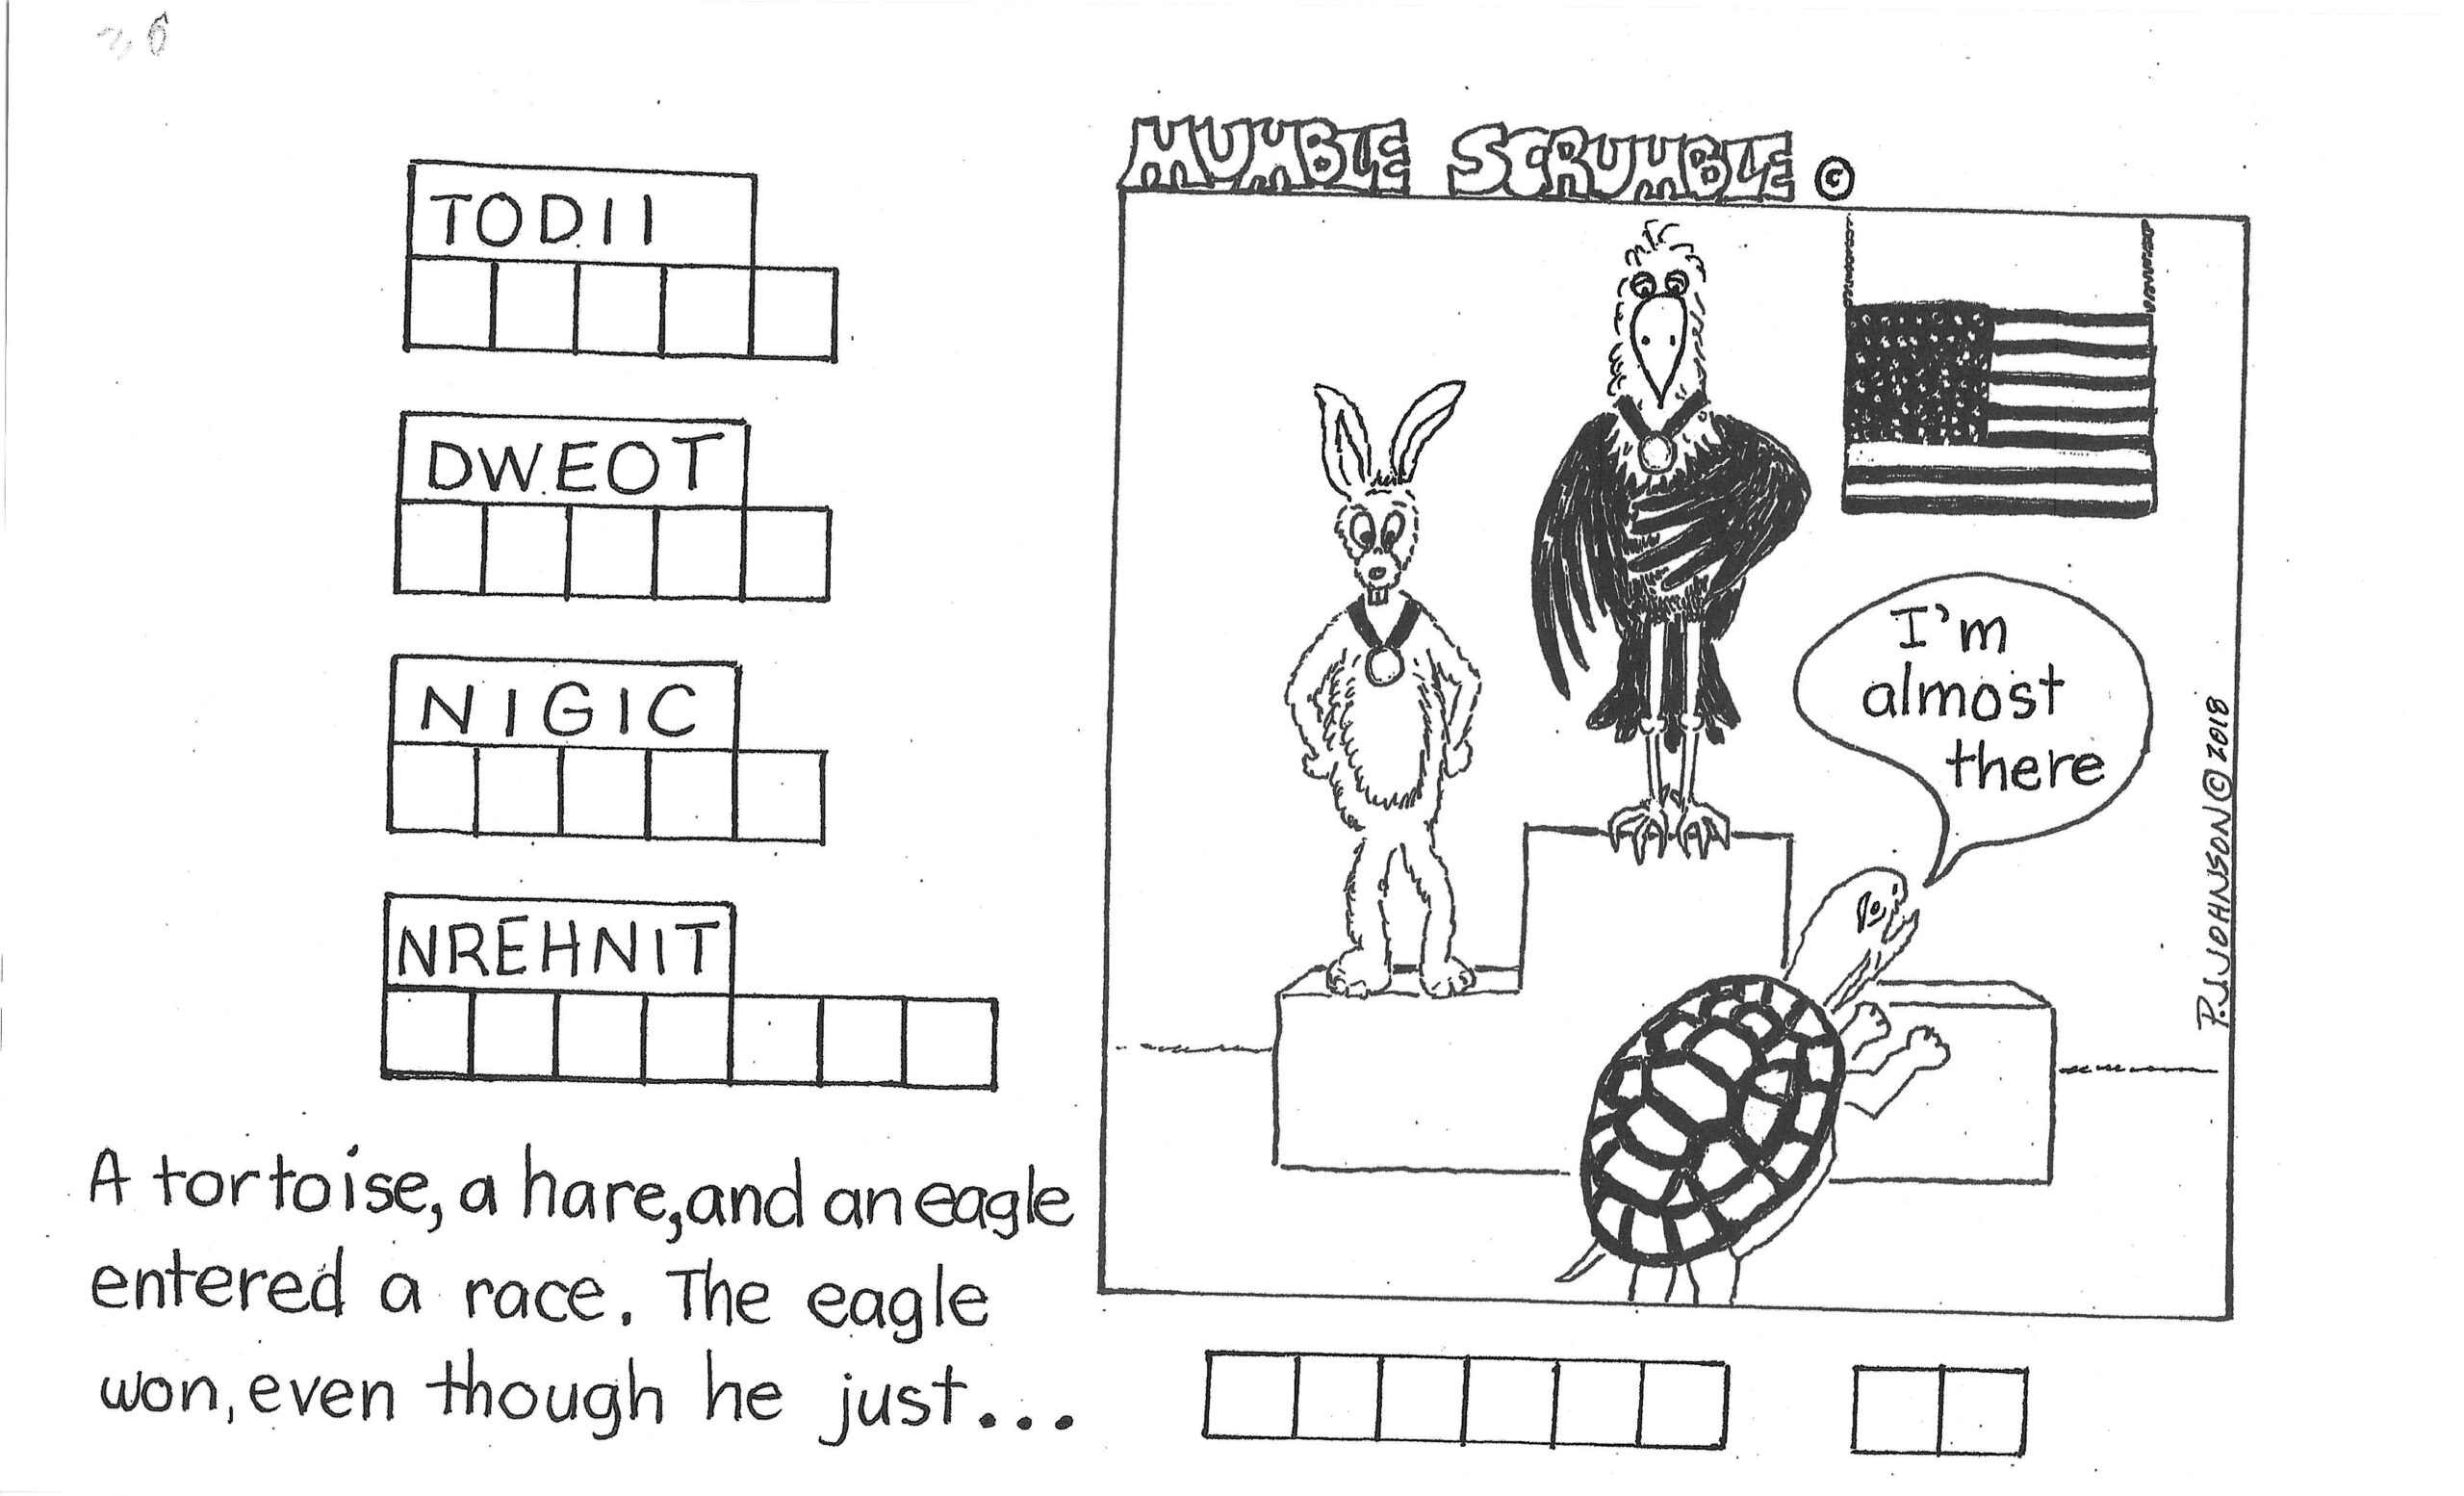 MUMBLE SCRUMBLE ©
TODII
DWEOT
NIGIC
NREHNIT
A tortoise, a hare, and an eagle
entered a race. The eagle
won, even though he just...
I'm
almost
there
P.J. JOHNSON © 2018